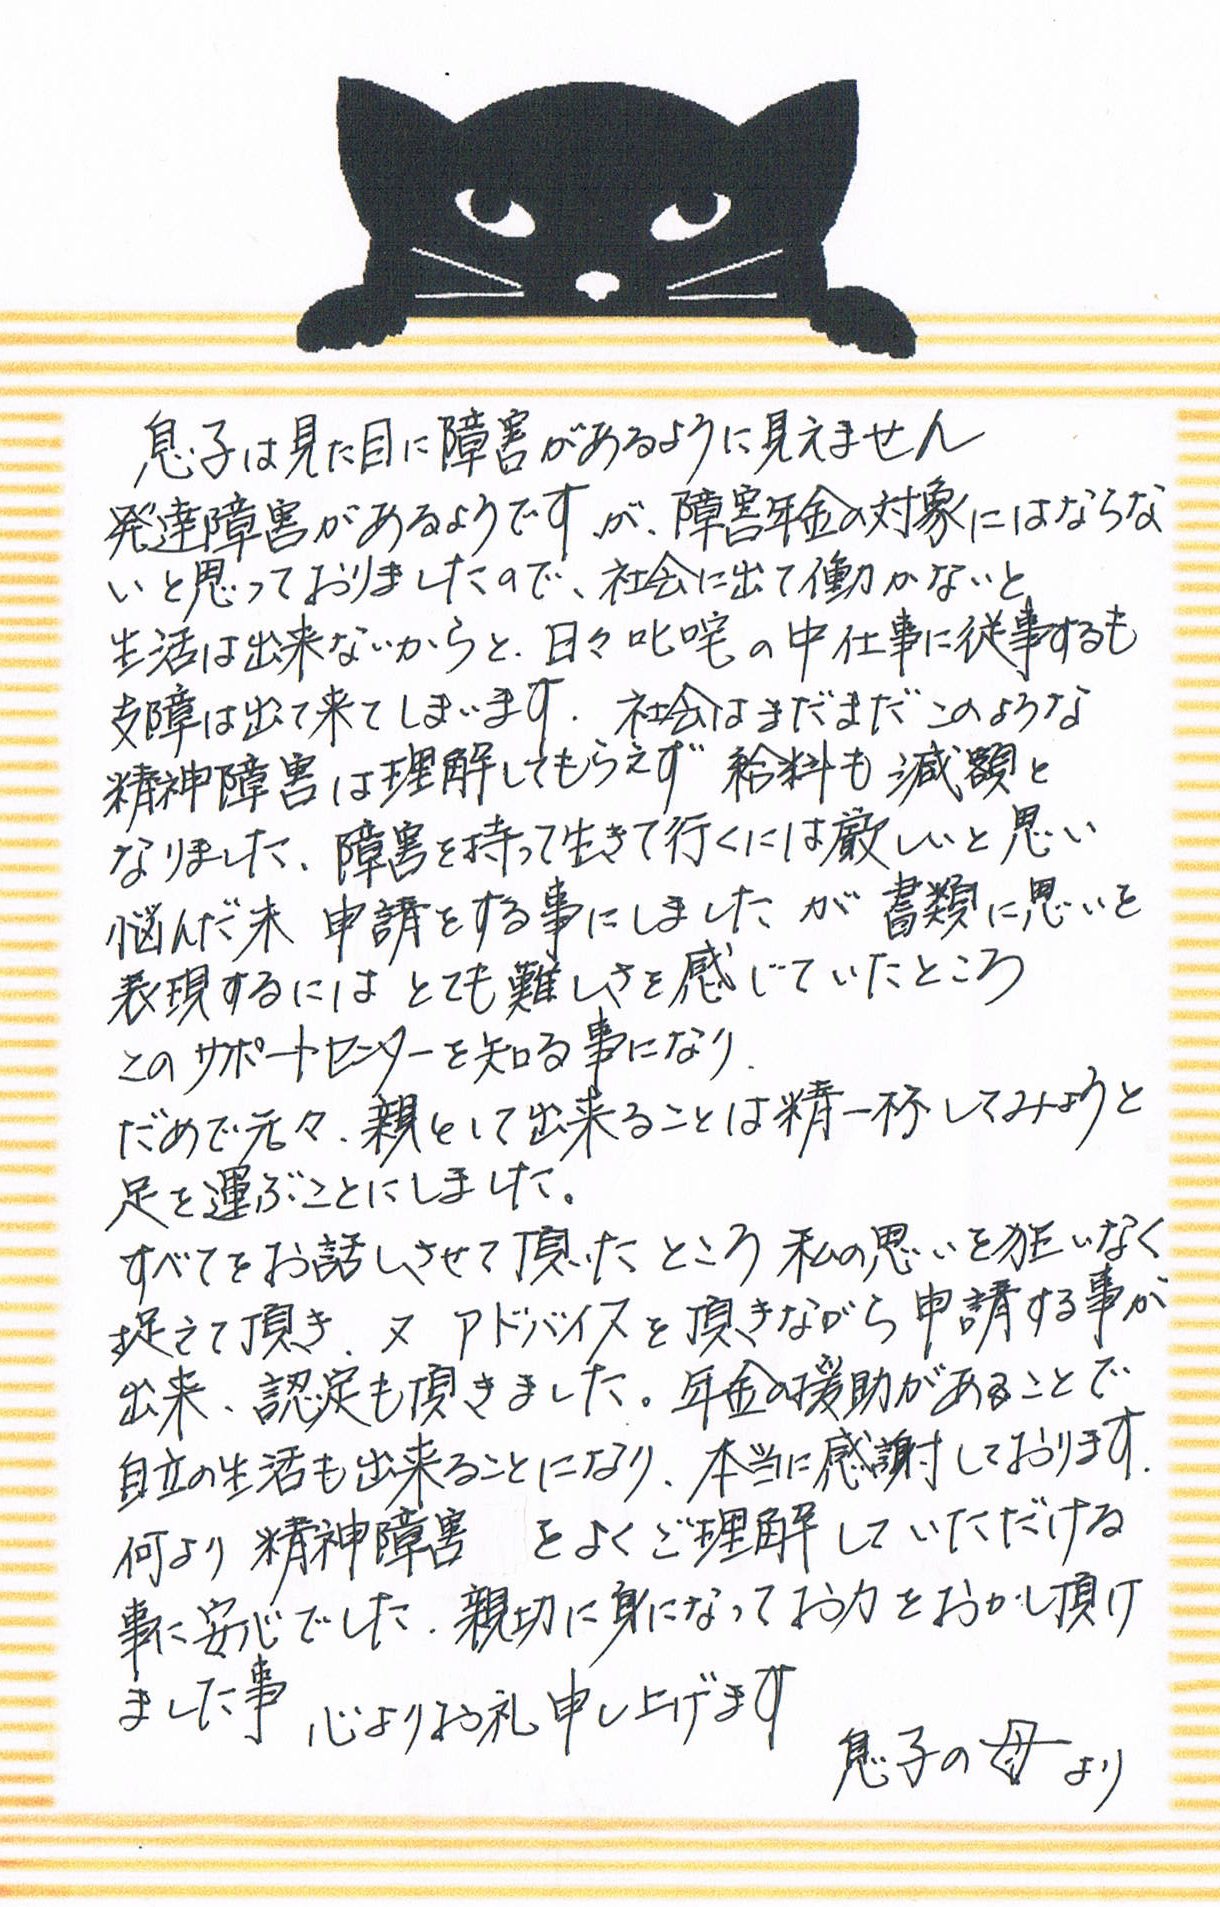 息子は見た目に障害があるように見えません
発達障害があるようですが、障害年金の対象にはならな
いと思っておりましたので、社会に出て働かないと
生活は出来ないからと、日々叱咤の中仕事に従事するも
支障は出て来てしまいます. 社会はまだまだこのような
精神障害は理解してもらえず 給料も減額と
なりました、障害を持って生きて行くには厳しいと思い
悩んだ末 申請をする事にしましたが 書類に思いを
表現するには とても難しさを感じていたところ
このサポートセンターを知る事になり.
だめで元々、親として出来ることは精一杯してみようと
足を運ぶことにしました。
すべてをお話しさせて頂いたところ 私の思いを狂いなく
捉えて頂き、又 アドバイスを頂きながら申請する事が
出来、認定も頂きました。年金の援助があることで
自立の生活も出来ることになり、本当に感謝しております.
何より精神障害 をよくご理解していただける
事に安心でした. 親切に身になってお力をおかし頂け
ました事 心よりお礼申し上げます
息子の母より